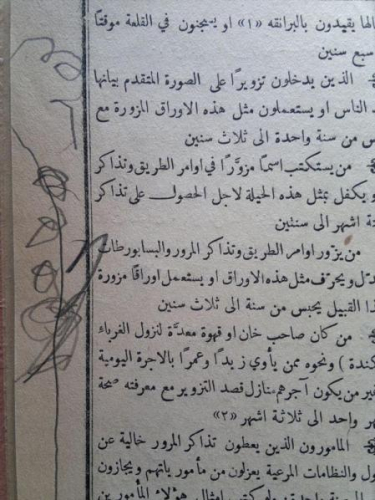 الها يقيدون بالبرانقه «١» او يسجنون في القلعة موقتًا
سبع سنين
الذين يدخلون تزويرًا على الصورة المتقدم بيانها
الناس او يستعملون مثل هذه الاوراق المزورة مع
س من سنة واحدة الى ثلاث سنين
من يستكتب اسمًا مزوَّرًا في اوامر الطريق وتذاكر
و يكفل بمثل هذه الحيلة لاجل الحصول على تذاكر
ثة اشهر الى سنتين
من يزور اوامر الطريق وتذاكر المرور والبسابورطات
دل ويحرّف مثل هذه الاوراق او يستعمل اوراقًا مزورة
ذا القبيل يحبس من سنة الى ثلاث سنين
من كان صاحب خان او قهوة معدَّة لنزول الغرباء
كندة ) ونحوه ممن يأوي زيدًا وعمرًا بالاجرة اليومية
غير من يكون آجرهم منازل قصد التزوير مع معرفته صحة
هر واحد الى ثلاثة اشهر «٢»
المامورون الذين يعطون تذاكر المرور خالية عن
ول والنظامات المرعية يعزلون من مأمورياتهم ويجازون